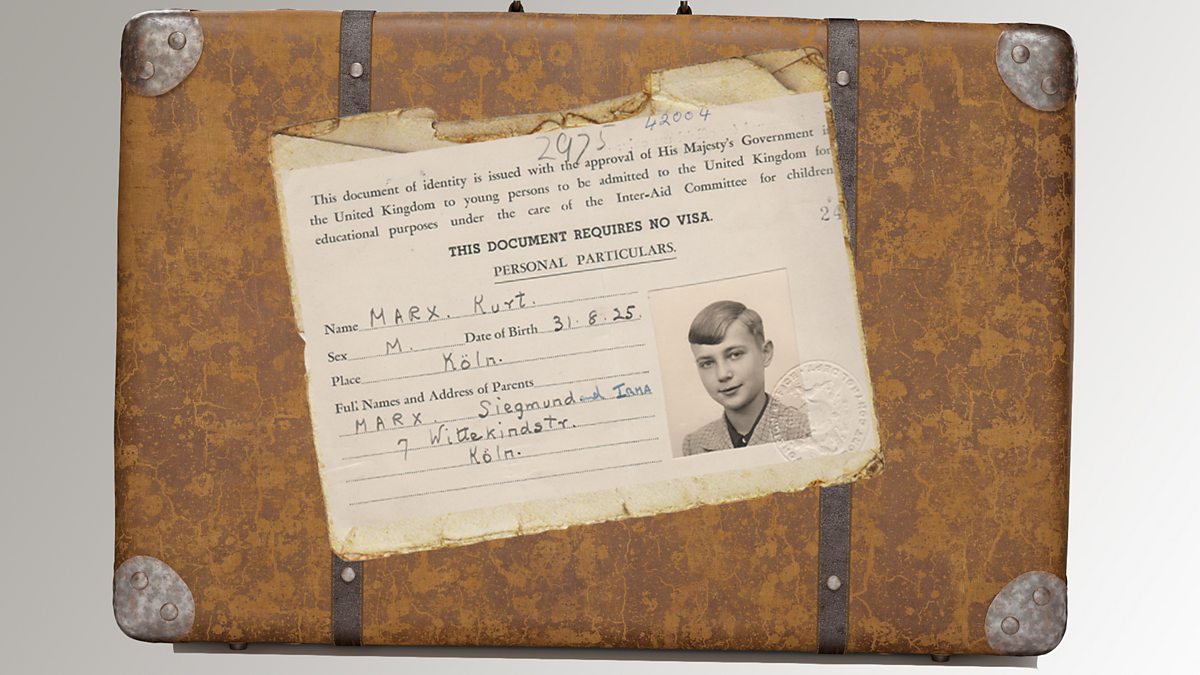 2975 42004
This document of identity is issued with the approval of His Majesty's Government in
the United Kingdom to young persons to be admitted to the United Kingdom for
educational purposes under the care of the Inter-Aid Committee for children
THIS DOCUMENT REQUIRES NO VISA.
PERSONAL PARTICULARS.
Name MARX. Kurt.
Sex M. Date of Birth 31.8.25.
Place Köln.
Full Names and Address of Parents
MARX. Siegmund and IRMA
7 Wittekindstr.
Köln.